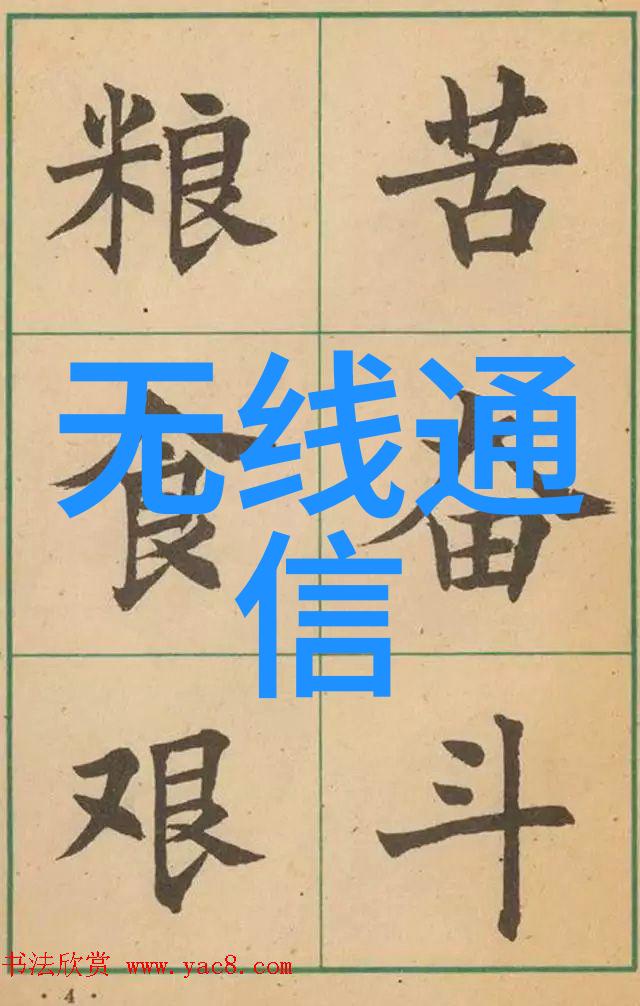 粮 苦
食 奋
艰 斗
无线通
信
书法欣赏 www.yac8.com
· 4 ·